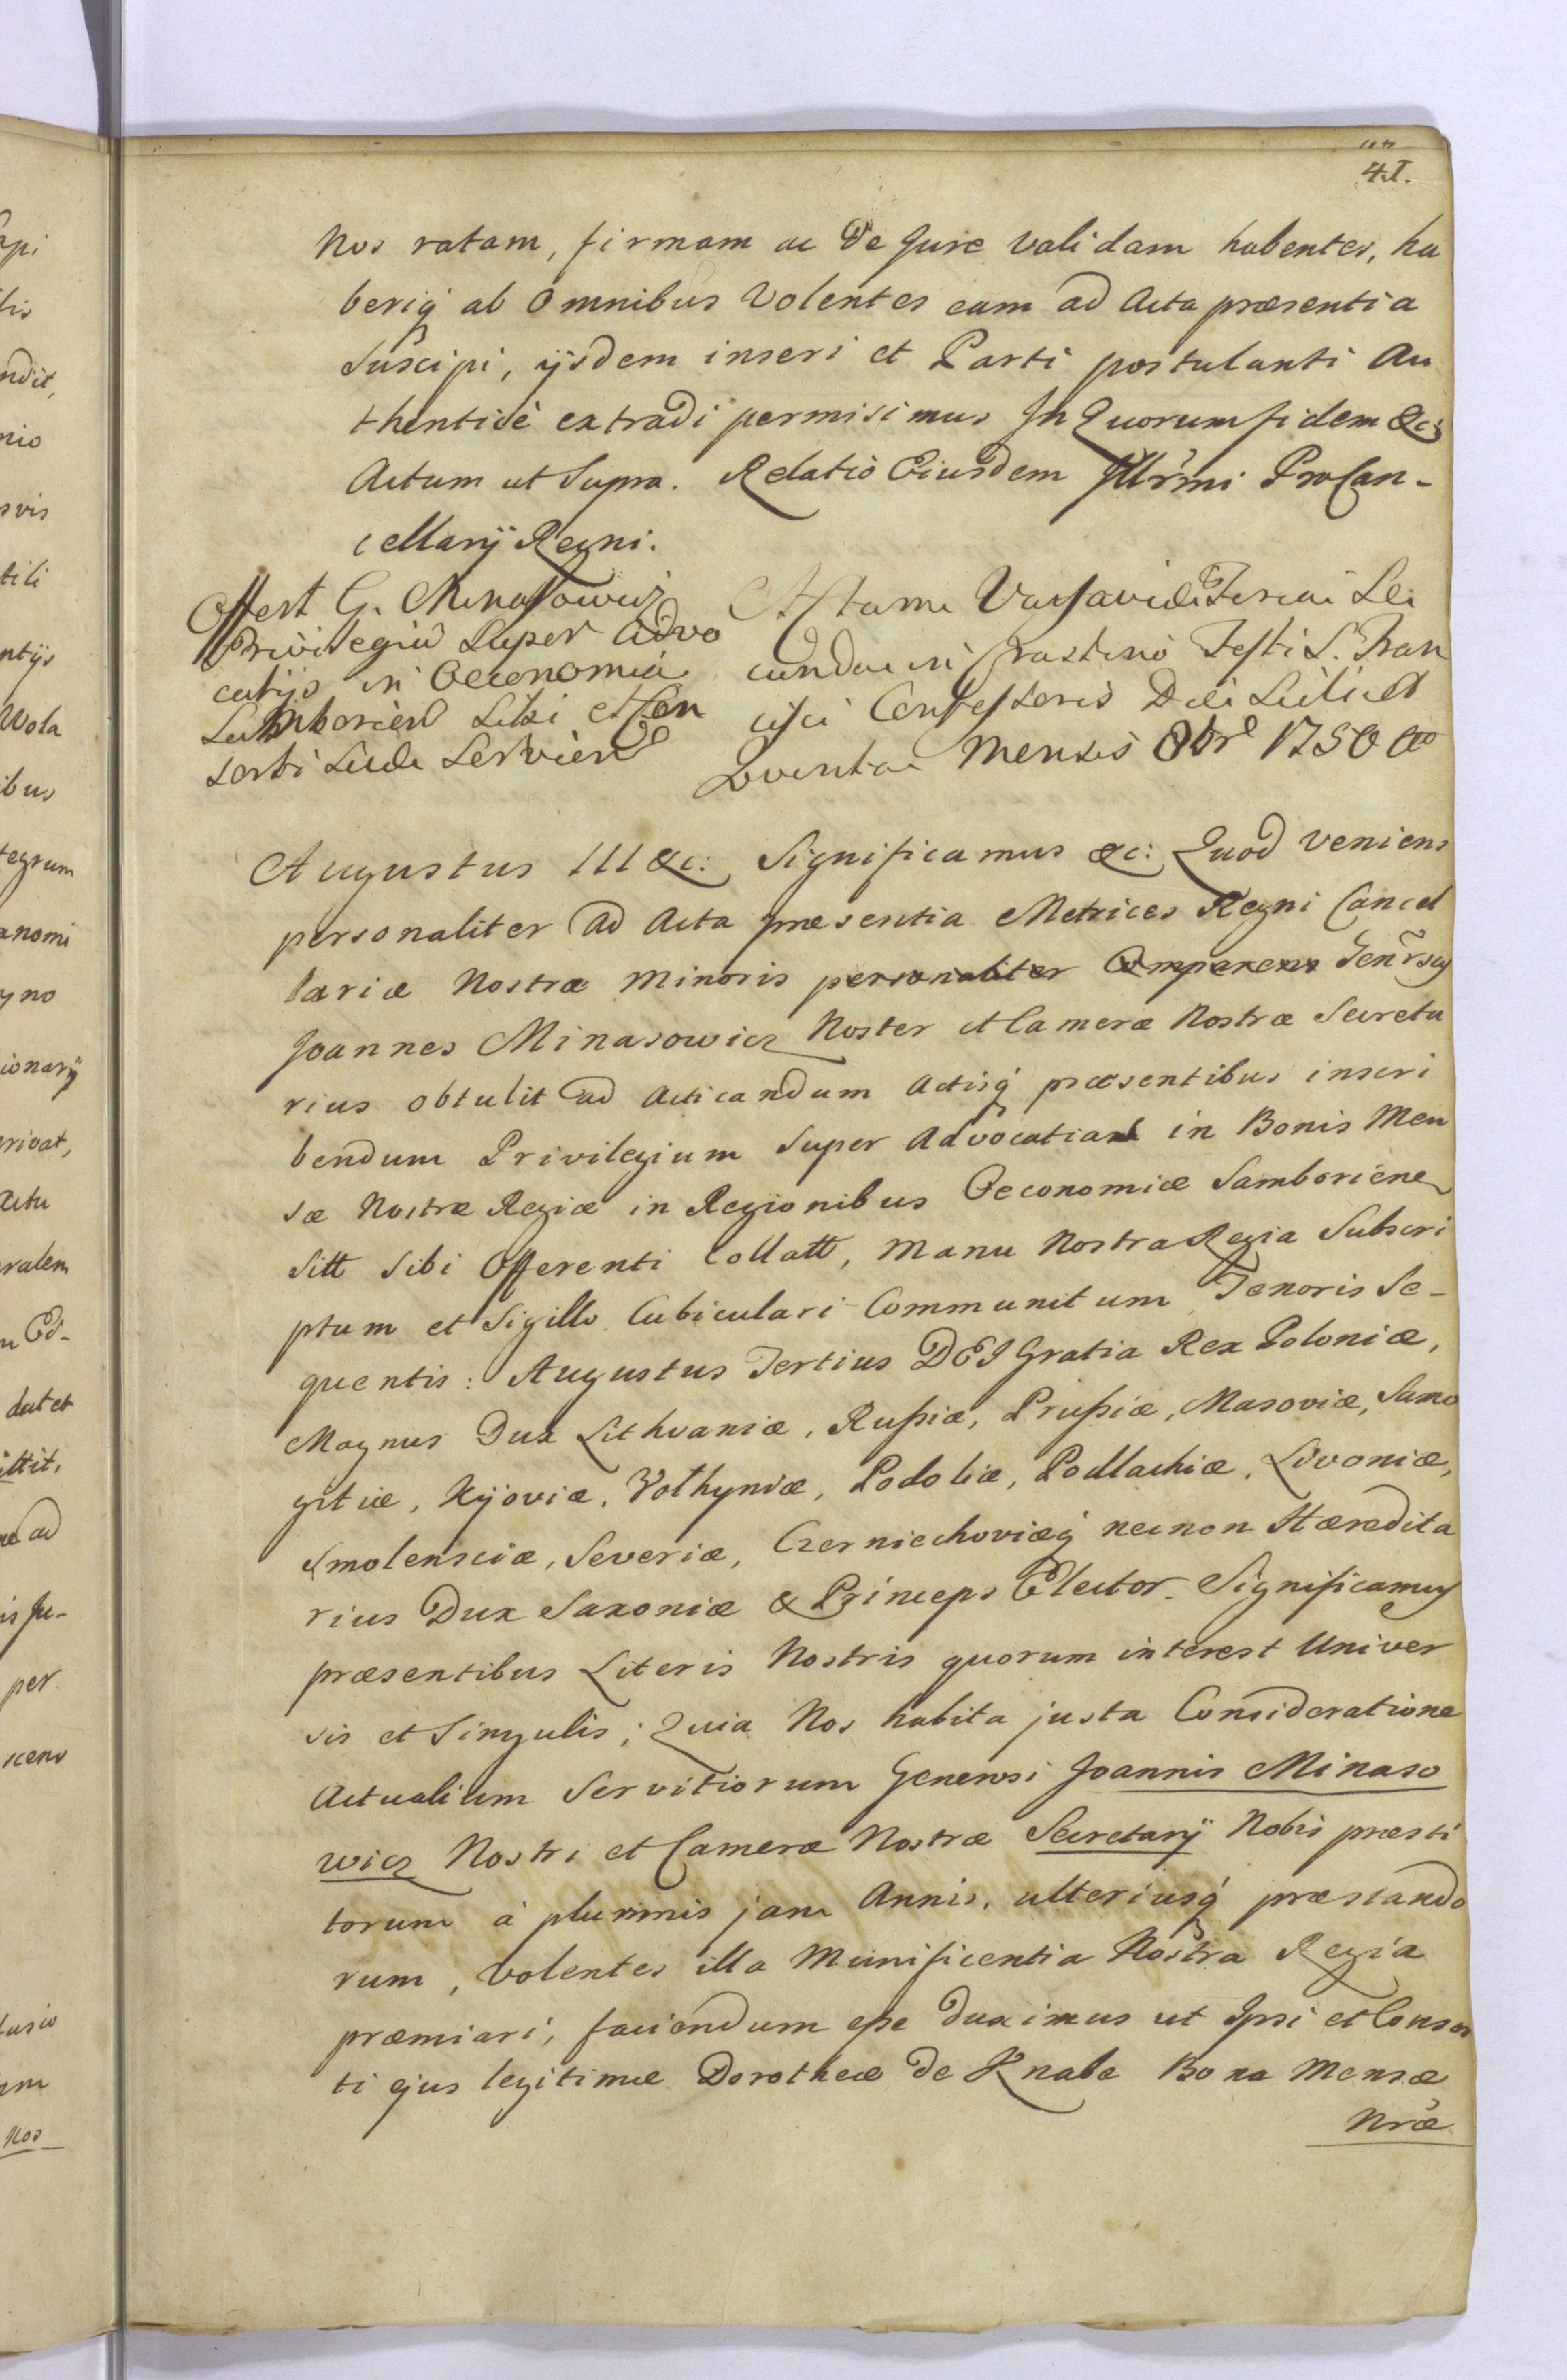 41.
Nos ratam, firmam ac De Jure validam habentes, ha
beriq́ ab omnibus Volentes eam ad Acta præsentia
Suscipi, ijsdem inseri et Parti postulanti Au
thenticè extradi permisimus In Quorum fidem &c:
Actum ut Supra. Relatio Eiusdem Illr̃mi ProCan-
cellarij Regni.
Offert G. Minasowicz
Privilegiũ Super Advo
catijs in Oeconomia
Samborien Sibi et Con
sorti Suæ Servien
Actum Varsaviæ Feria Se
cunda in Crastino Festi S. Fran
cisci Confessoris Die Scilicet
Quinta Mensis 8brs 1750 Ao
Augustus III &c: Significamus &c: Quod veniens
personaliter ad Acta præsentia Metrices Regni Cancel
lariæ Nostræ Minoris personaliter Comparens Genr̃sus
Joannes Minasowicz Noster et Cameræ Nostræ Secreta
rius obtulit ad Acticandum Actisq́ præsentibus inscri
bendum Privilegium Super Advocatias in Bonis Men
sæ Nostræ Regiæ in Regionibus Oeconomiæ Samboriene
Sitt Sibi Offerenti Collatt, Manu Nostra Regia Subscri
ptum et Sigillo Cubiculari Communitum Tenoris Se-
quentis: Augustus Tertius DEI Gratia Rex Poloniæ,
Magnus Dux Lithvaniæ, Rußiæ, Prußiæ, Masoviæ, Samo
gitiæ, Kijoviæ, Volhyniæ, Podoliæ, Podlachiæ, Livoniæ,
Smolensciæ, Severiæ, Czerniechoviæq́ necnon Hæredita
rius Dux Saxoniæ & Princeps Elector. Significamus
præsentibus Literis Nostris quorum interest Univer
sis et Singulis; Quia Nos habita justa Consideratione
Actualium Servitiorum Generosi Joannis Minaso
wicz Nostri et Cameræ Nostræ Secretarij Nobis præsti
torum à plurimis jam Annis, ulteriusq́ præstando
rum, volentes illa Munificentia Nostra Regia
præmiari, faciendum eße duximus ut Ipsi et Consor
ti ejus legitimæ Dorotheæ de Knabe Bona Mensæ
Nr̃æ